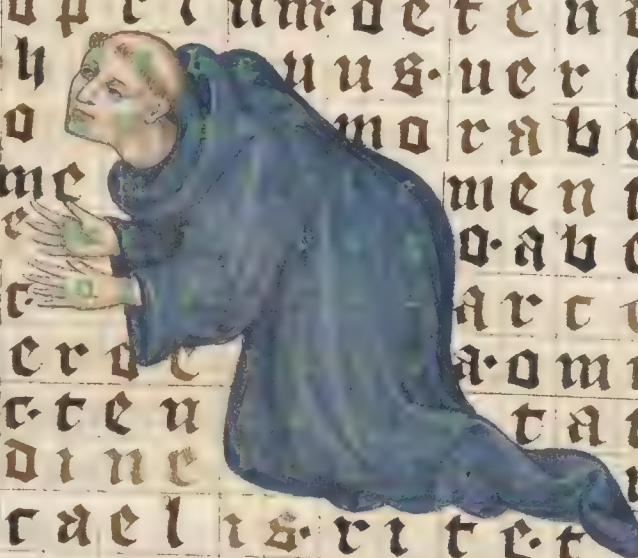 o p r i um· d e t e n
h uus· uer
o morabr
me men
e o·abo
t· art
erot a·omi
t·teu tat
dine
raelis·ritet·t